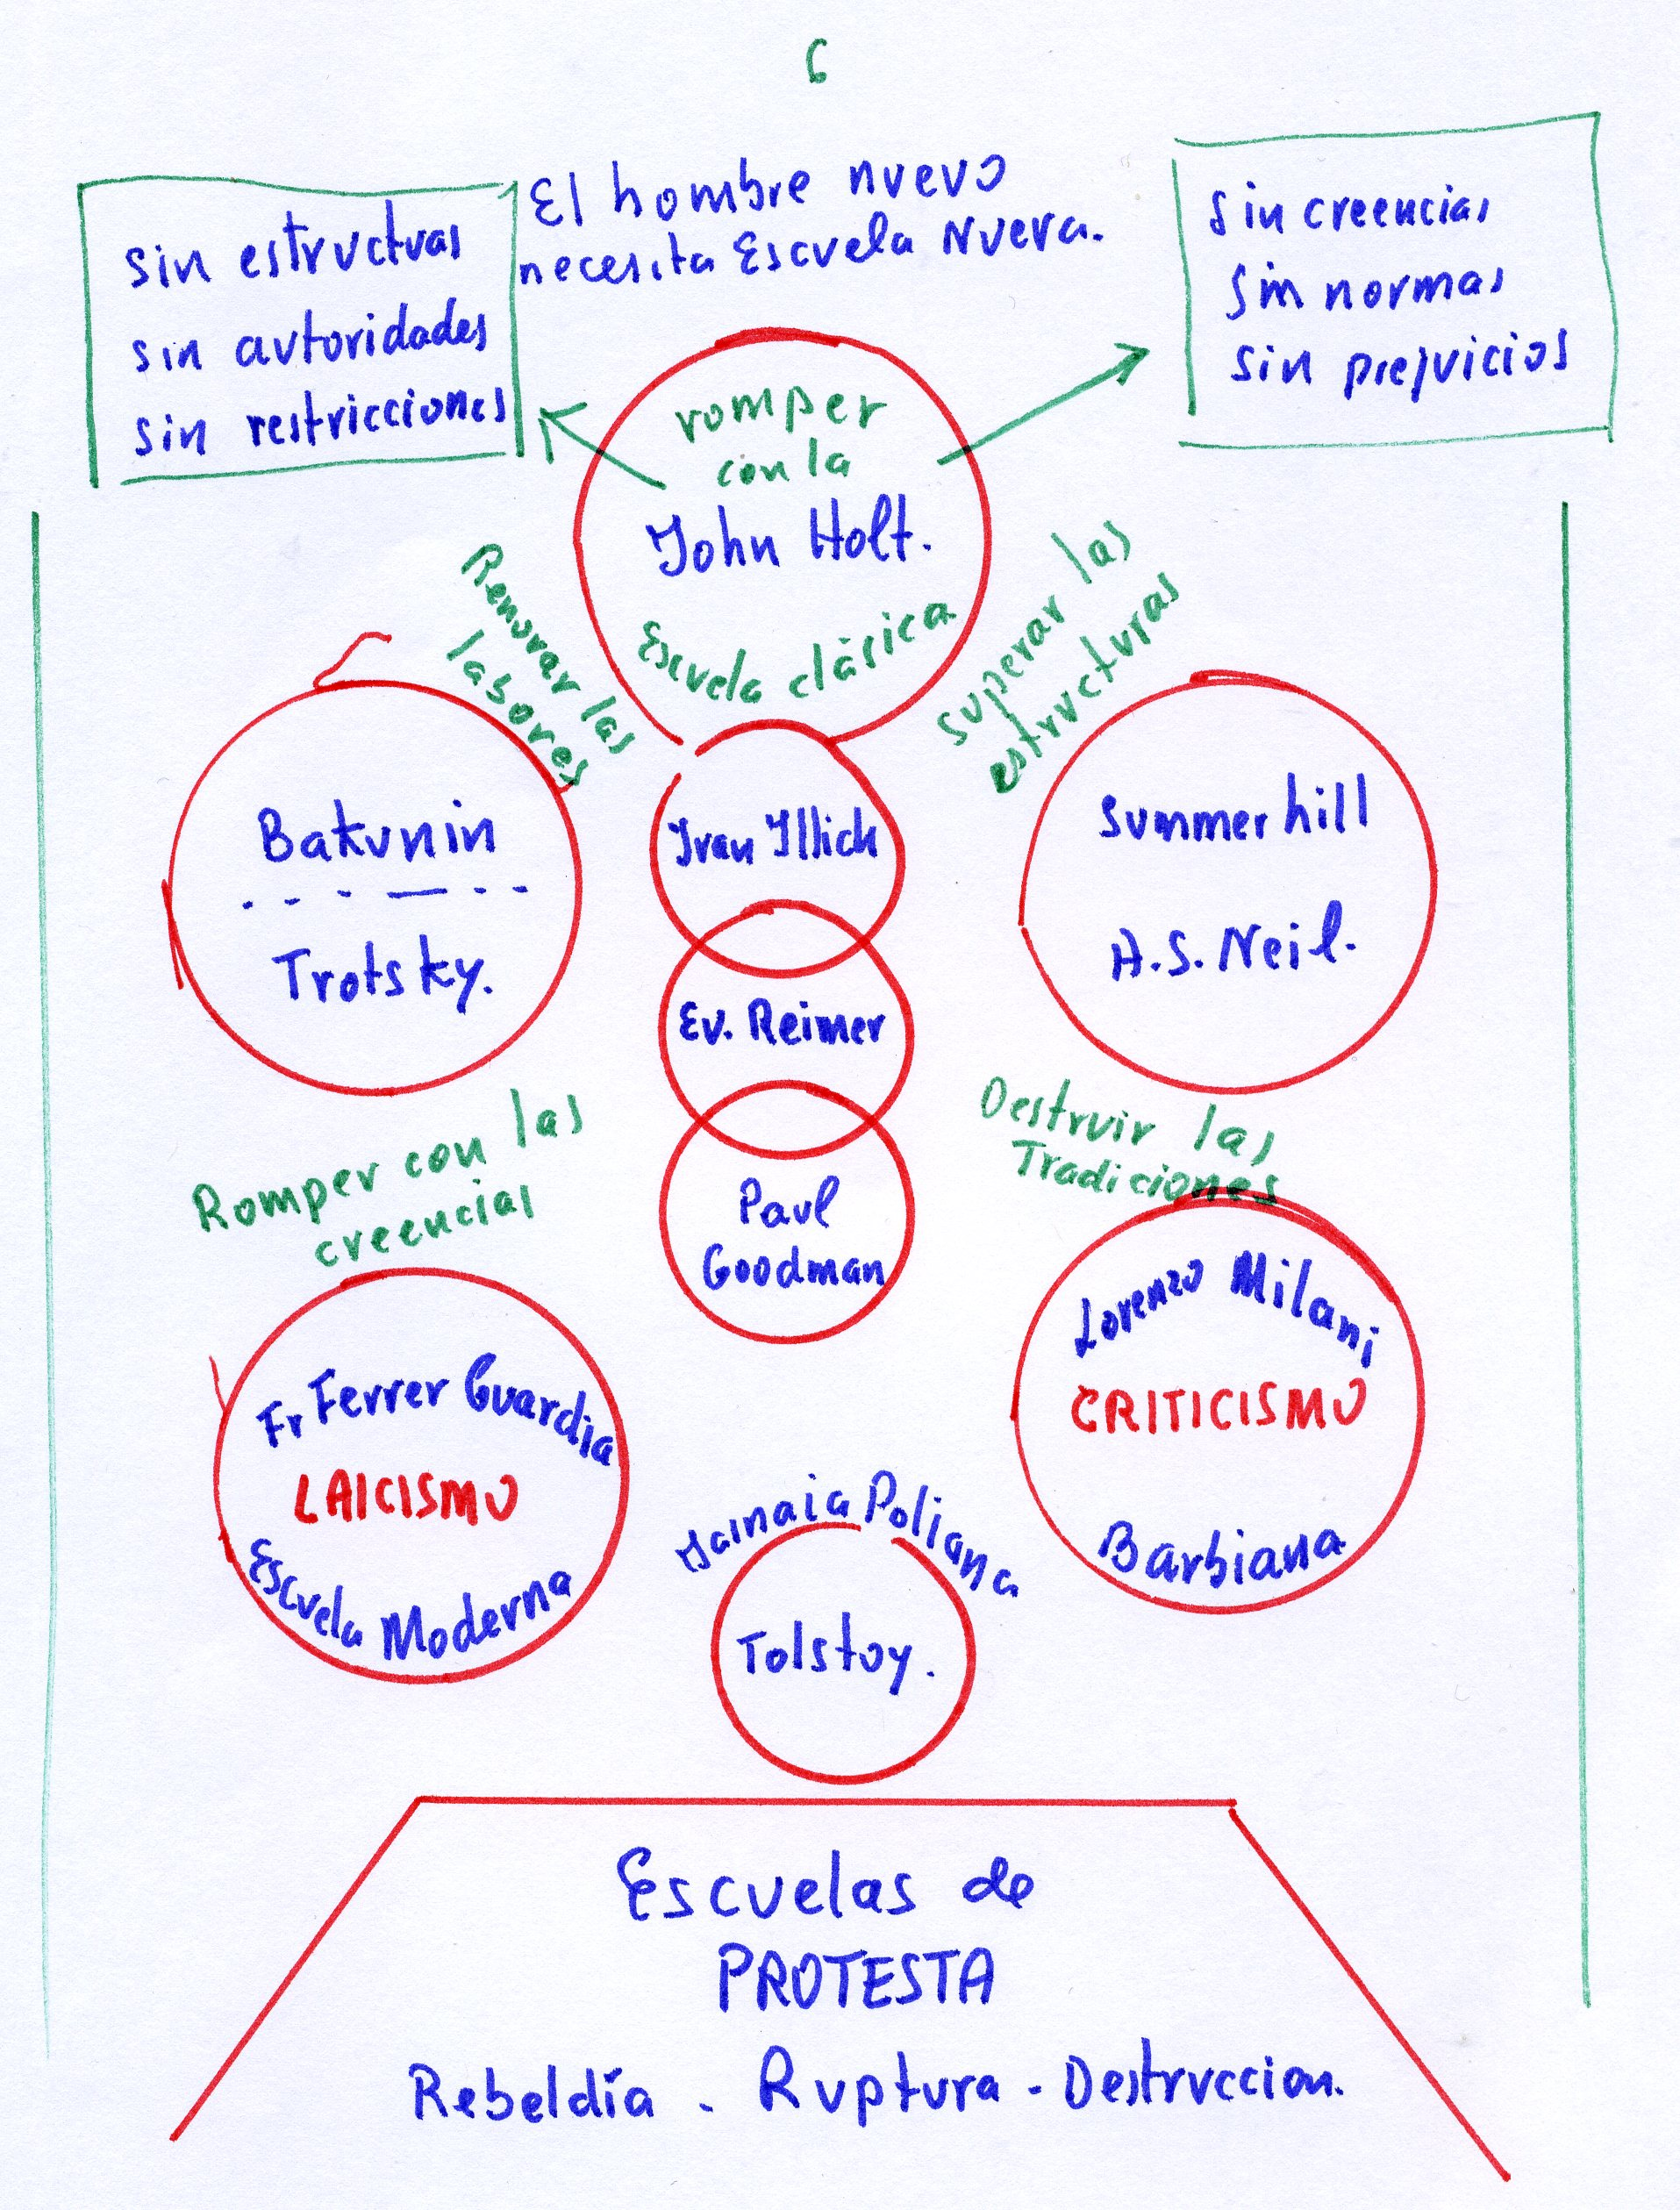 6
El hombre nuevo
necesita Escuela Nueva.
sin estructuas
sin autoridades
sin restricciones
sin creencias
sin normas
sin prejuicios
romper
con la
John Holt.
Escuela clásica
Renovar las
labores
superar las
estructuras
Bakunin
Trotsky.
Ivan Illich
Summerhill
A.S. Neil.
Ev. Reimer
Paul
Goodman
Romper con las
creencias
Destruir las
Tradiciones
Fr Ferrer Guardia
LAICISMO
Escuela Moderna
Lorenzo Milani
CRITICISMO
Barbiana
Iasnaia Poliana
Tolstoy.
Escuelas de
PROTESTA
Rebeldía. Ruptura - Destruccion.